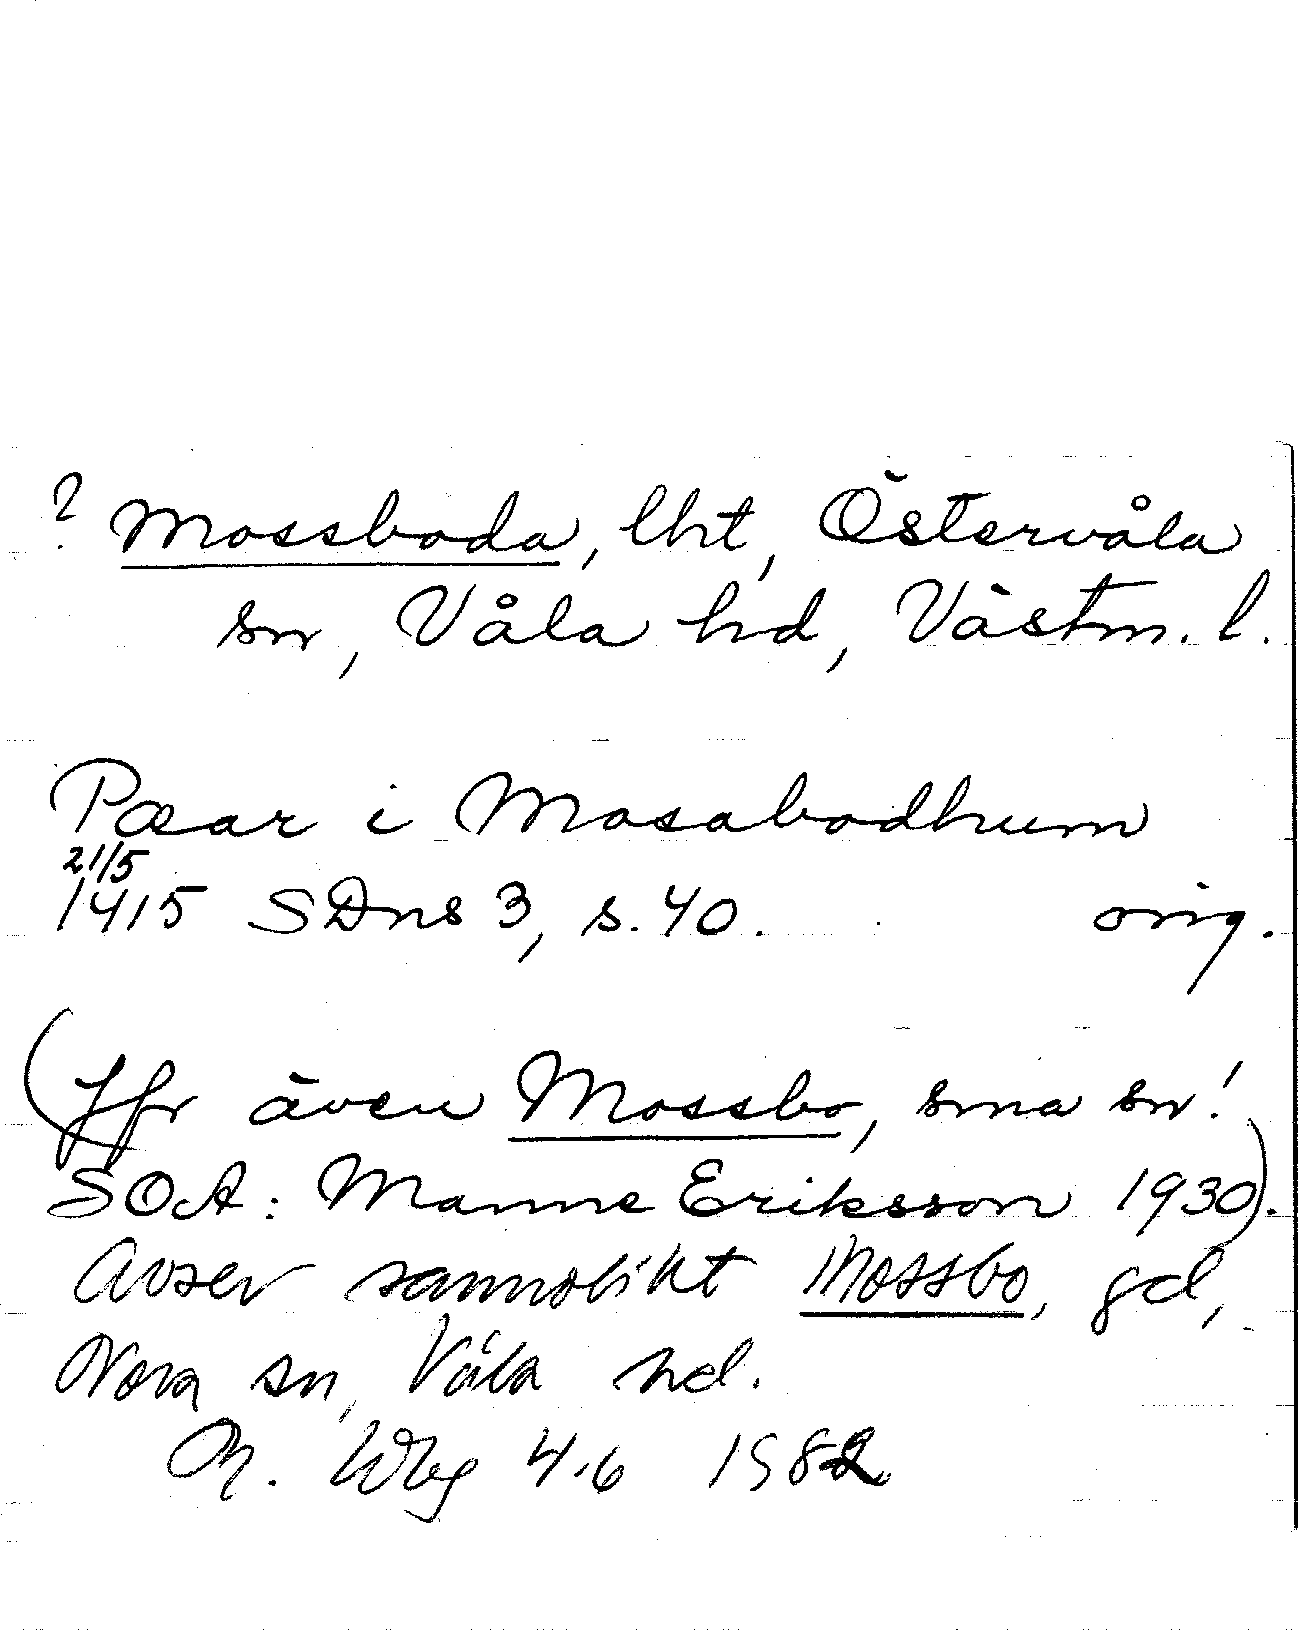 ? Mossboda, lht, Östervåla
sn, Våla hd, Västm. l.
Pæar i Mosabodhum
21/5
1415 SDns 3, s. 40. orig.
(Jfr även Mossbo, sma sn!
SOA: Manne Eriksson 1930).
Avser sannolikt Mossbo, gd,
Nora sn, Våla hd.
M. Wbg 4.6 1982